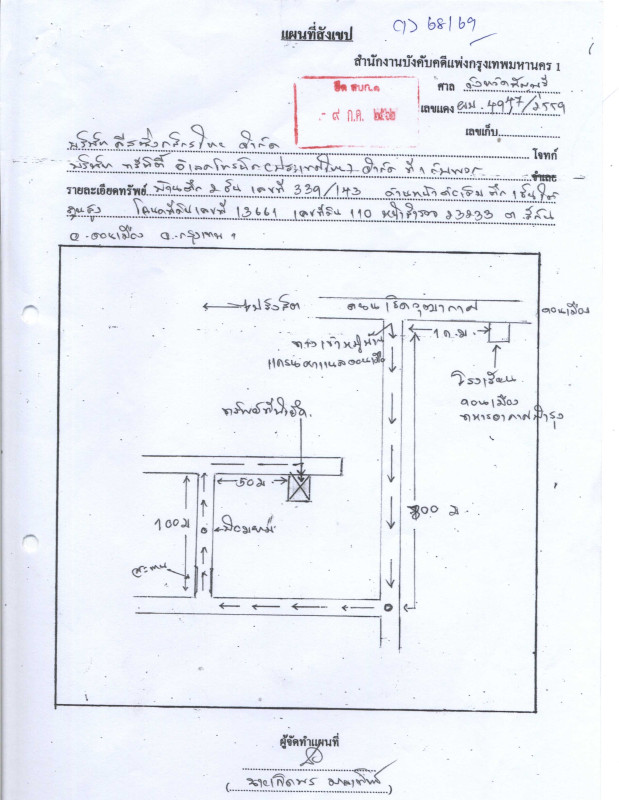 (ว) 68/69
แผนที่สังเขป
สำนักงานบังคับคดีแพ่งกรุงเทพมหานคร 1
ยึด สบก.๑
- ๙ ก.ค. ๒๕๖๒
ศาล จังหวัดมีนบุรี
เลขแดง ผบ. 4947/๒๕๕๑
เลขเก็บ
บริษัท ลีสซิ่งกสิกรไทย จำกัด โจทก์
บริษัท ทรีนิตี้ อิเลคโทรนิค (ประเทศไทย) จำกัด ที่ 1 กับพวก จำเลย
รายละเอียดทรัพย์ บ้านตึก 2 ชั้น เลขที่ 339/143 ด้านหน้าต่อเติม ตึก 1 ชั้น
โฉนดที่ดินเลขที่ 13661 เลขที่ดิน 110 หน้าสำรวจ 23233 ต. สีกัน
อ. ดอนเมือง จ. กรุงเทพฯ
ไปรังสิต
ถนนเชิดวุฒากาศ
ดอนเมือง
ทางเข้าหมู่บ้าน
1 ก.ม.
โรงเรียน
ดอนเมือง
ทหารอากาศบำรุง
ทรัพย์ที่นำยึด
50 ม
100 ม
ป้อมยาม
สะพาน
800 ม
ผู้จัดทำแผนที่